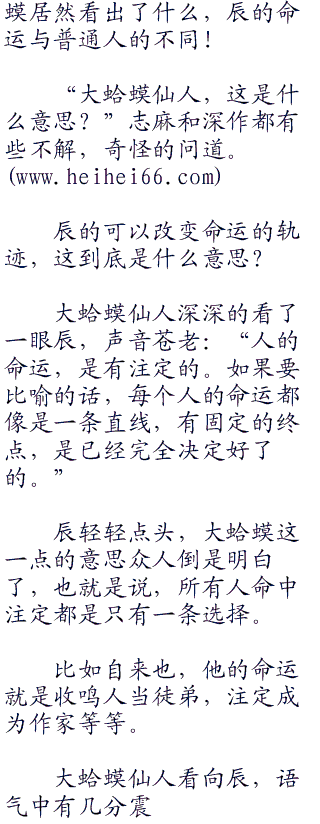 蟆居然看出了什么，辰的命
运与普通人的不同！
“大蛤蟆仙人，这是什
么意思？”志麻和深作都有
些不解，奇怪的问道。
(www.heihei66.com)
辰的可以改变命运的轨
迹，这到底是什么意思？
大蛤蟆仙人深深的看了
一眼辰，声音苍老：“人的
命运，是有注定的。如果要
比喻的话，每个人的命运都
像是一条直线，有固定的终
点，是已经完全决定好了
的。”
辰轻轻点头，大蛤蟆这
一点的意思众人倒是明白
了，也就是说，所有人命中
注定都是只有一条选择。
比如自来也，他的命运
就是收鸣人当徒弟，注定成
为作家等等。
大蛤蟆仙人看向辰，语
气中有几分震